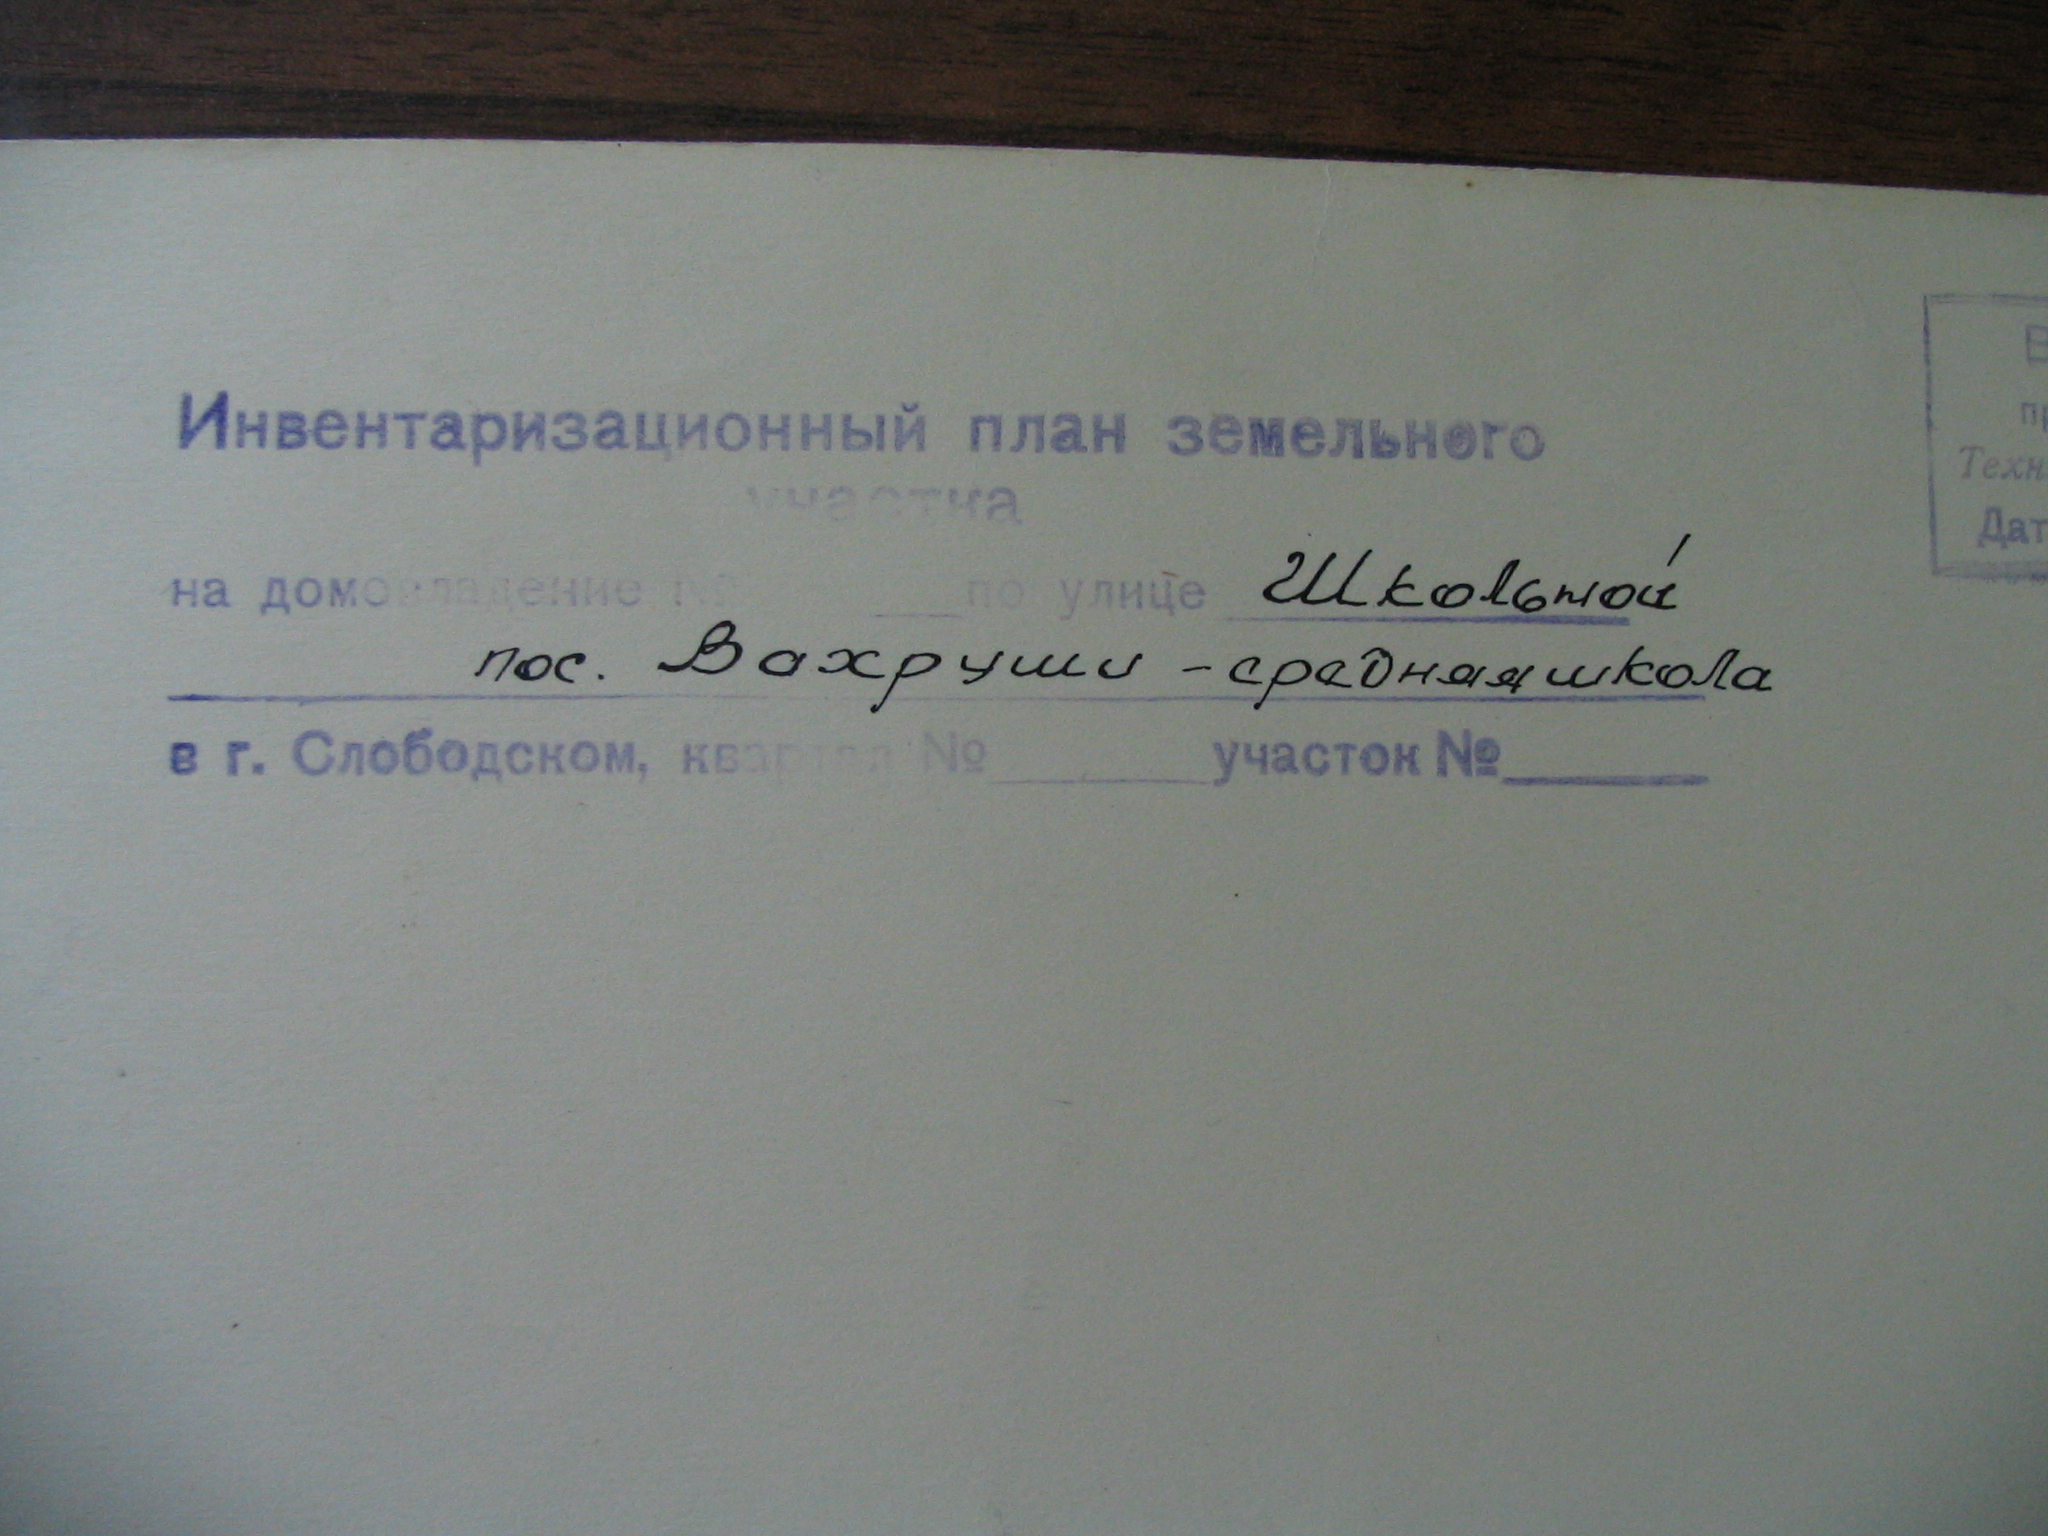 Инвентаризационный план земельного
участка
на домовладение № ___ по улице Школьной
пос. Вахруши - средняя школа
в г. Слободском, квартал № ______ участок № ______
Дат